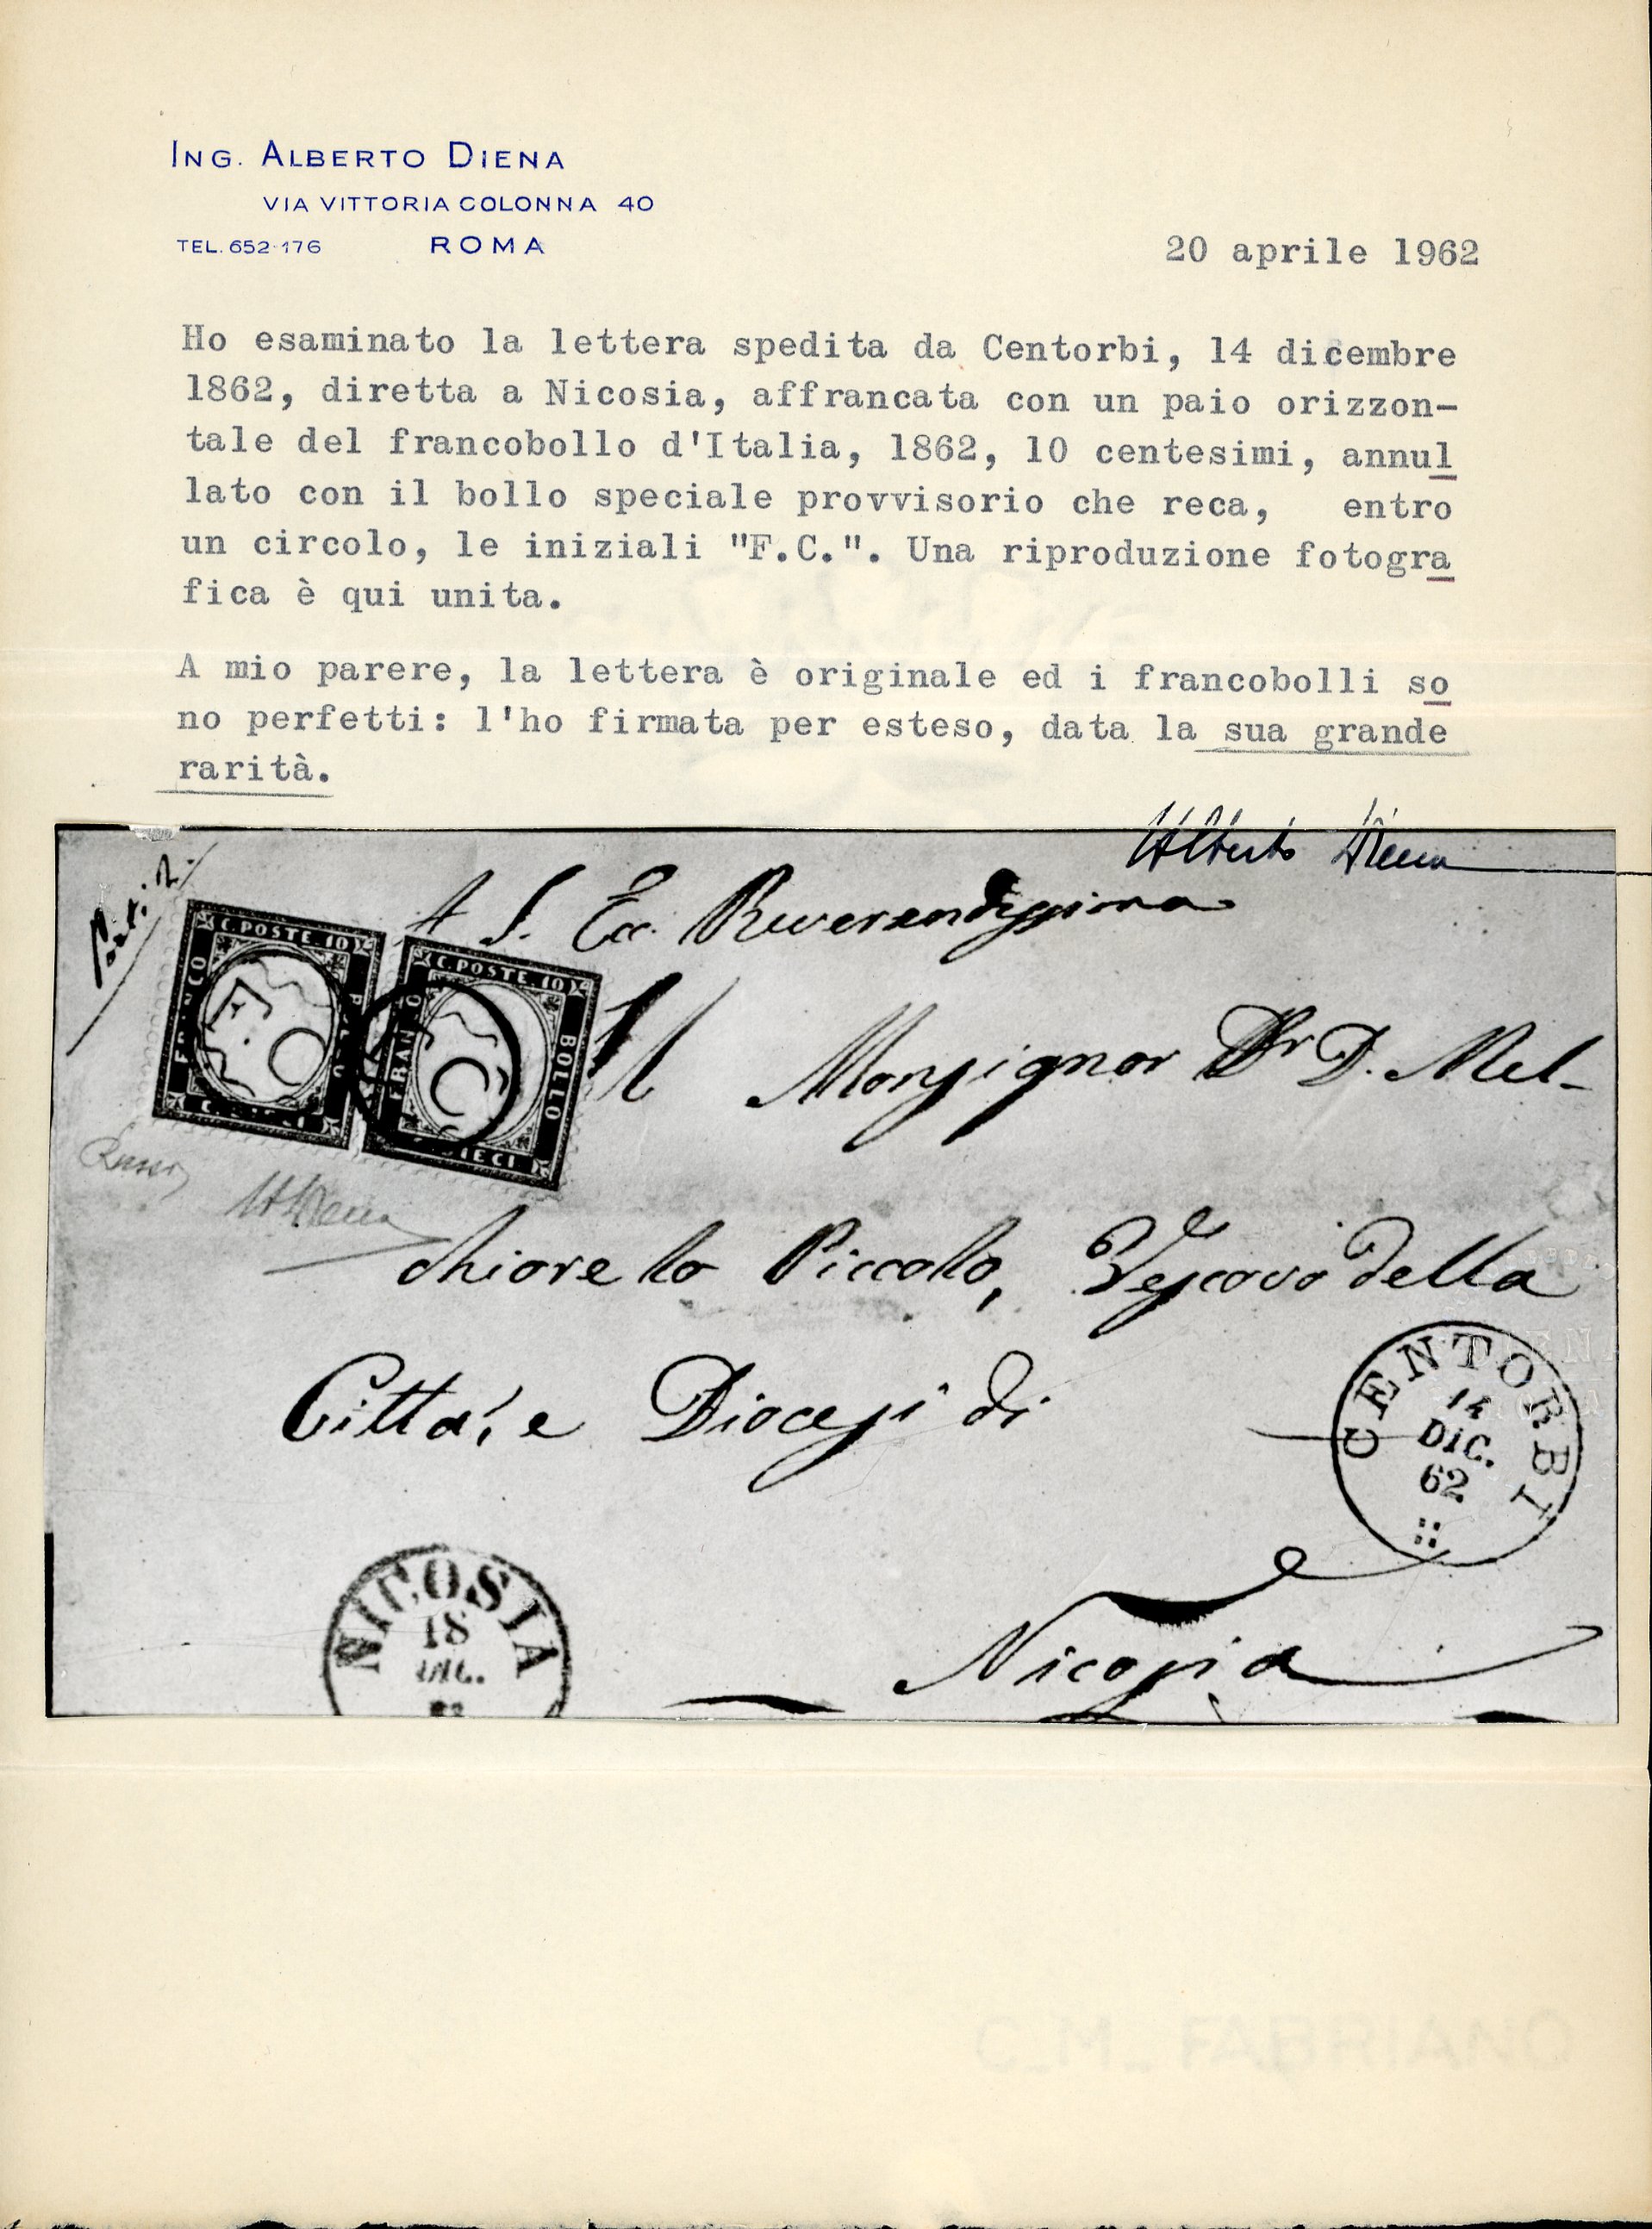 ING. ALBERTO DIENA
VIA VITTORIA COLONNA 40
TEL. 652-176 ROMA
20 aprile 1962
Ho esaminato la lettera spedita da Centorbi, 14 dicembre
1862, diretta a Nicosia, affrancata con un paio orizzon-
tale del francobollo d'Italia, 1862, 10 centesimi, annul
lato con il bollo speciale provvisorio che reca, entro
un circolo, le iniziali "F.C.". Una riproduzione fotogra
fica è qui unita.
A mio parere, la lettera è originale ed i francobolli so
no perfetti: l'ho firmata per esteso, data la sua grande
rarità.
Alberto Diena
A S. Ecc. Reverendissima
C. POSTE 10
FRANCO
F. C.
C. POSTE. 10
FRANCO
BOLLO
DIECI
C
Monsignor Dr D. Mel-
ADiena
chiore lo Piccolo, Vescovo della
Città, e Diocesi di
CENTORBI
14
DIC.
62
NICOSIA
18
DIC.
Nicosia
C.M. FABRIANO